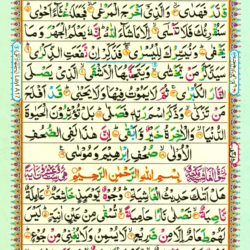 قَدَّرَ فَهَدٰى وَالَّذِىْۤ اَخْرَجَ الْمَرْعٰى فَجَعَلَهٗ غُثَآءً اَحْوٰى
سَنُقْرِئُكَ فَلَا تَنْسٰٓى اِلَّا مَا شَآءَ اللّٰهُ اِنَّهٗ يَعْلَمُ الْجَهْرَ وَمَا
يَخْفٰى وَنُيَسِّرُكَ لِلْيُسْرٰى فَذَكِّرْ اِنْ نَّفَعَتِ الذِّكْرٰى
سَيَذَّكَّرُ مَنْ يَّخْشٰى وَيَتَجَنَّبُهَا الْاَشْقَى الَّذِىْ يَصْلَى
النَّارَ الْكُبْرٰى ثُمَّ لَا يَمُوْتُ فِيْهَا وَلَا يَحْيٰى قَدْ اَفْلَحَ
مَنْ تَزَكّٰى وَذَكَرَ اسْمَ رَبِّهٖ فَصَلّٰى بَلْ تُؤْثِرُوْنَ الْحَيٰوةَ
الدُّنْيَا وَالْاٰخِرَةُ خَيْرٌ وَّاَبْقٰى اِنَّ هٰذَا لَفِى الصُّحُفِ
الْاُوْلٰى صُحُفِ اِبْرٰهِيْمَ وَمُوْسٰى
بِسْمِ اللّٰهِ الرَّحْمٰنِ الرَّحِيْمِ
هَلْ اَتٰىكَ حَدِيْثُ الْغَاشِيَةِ وُجُوْهٌ يَّوْمَئِذٍ خَاشِعَةٌ عَامِلَةٌ
نَّاصِبَةٌ تَصْلٰى نَارًا حَامِيَةً تُسْقٰى مِنْ عَيْنٍ اٰنِيَةٍ لَيْسَ
لَهُمْ طَعَامٌ اِلَّا مِنْ ضَرِيْعٍ لَّا يُسْمِنُ وَلَا يُغْنِىْ مِنْ